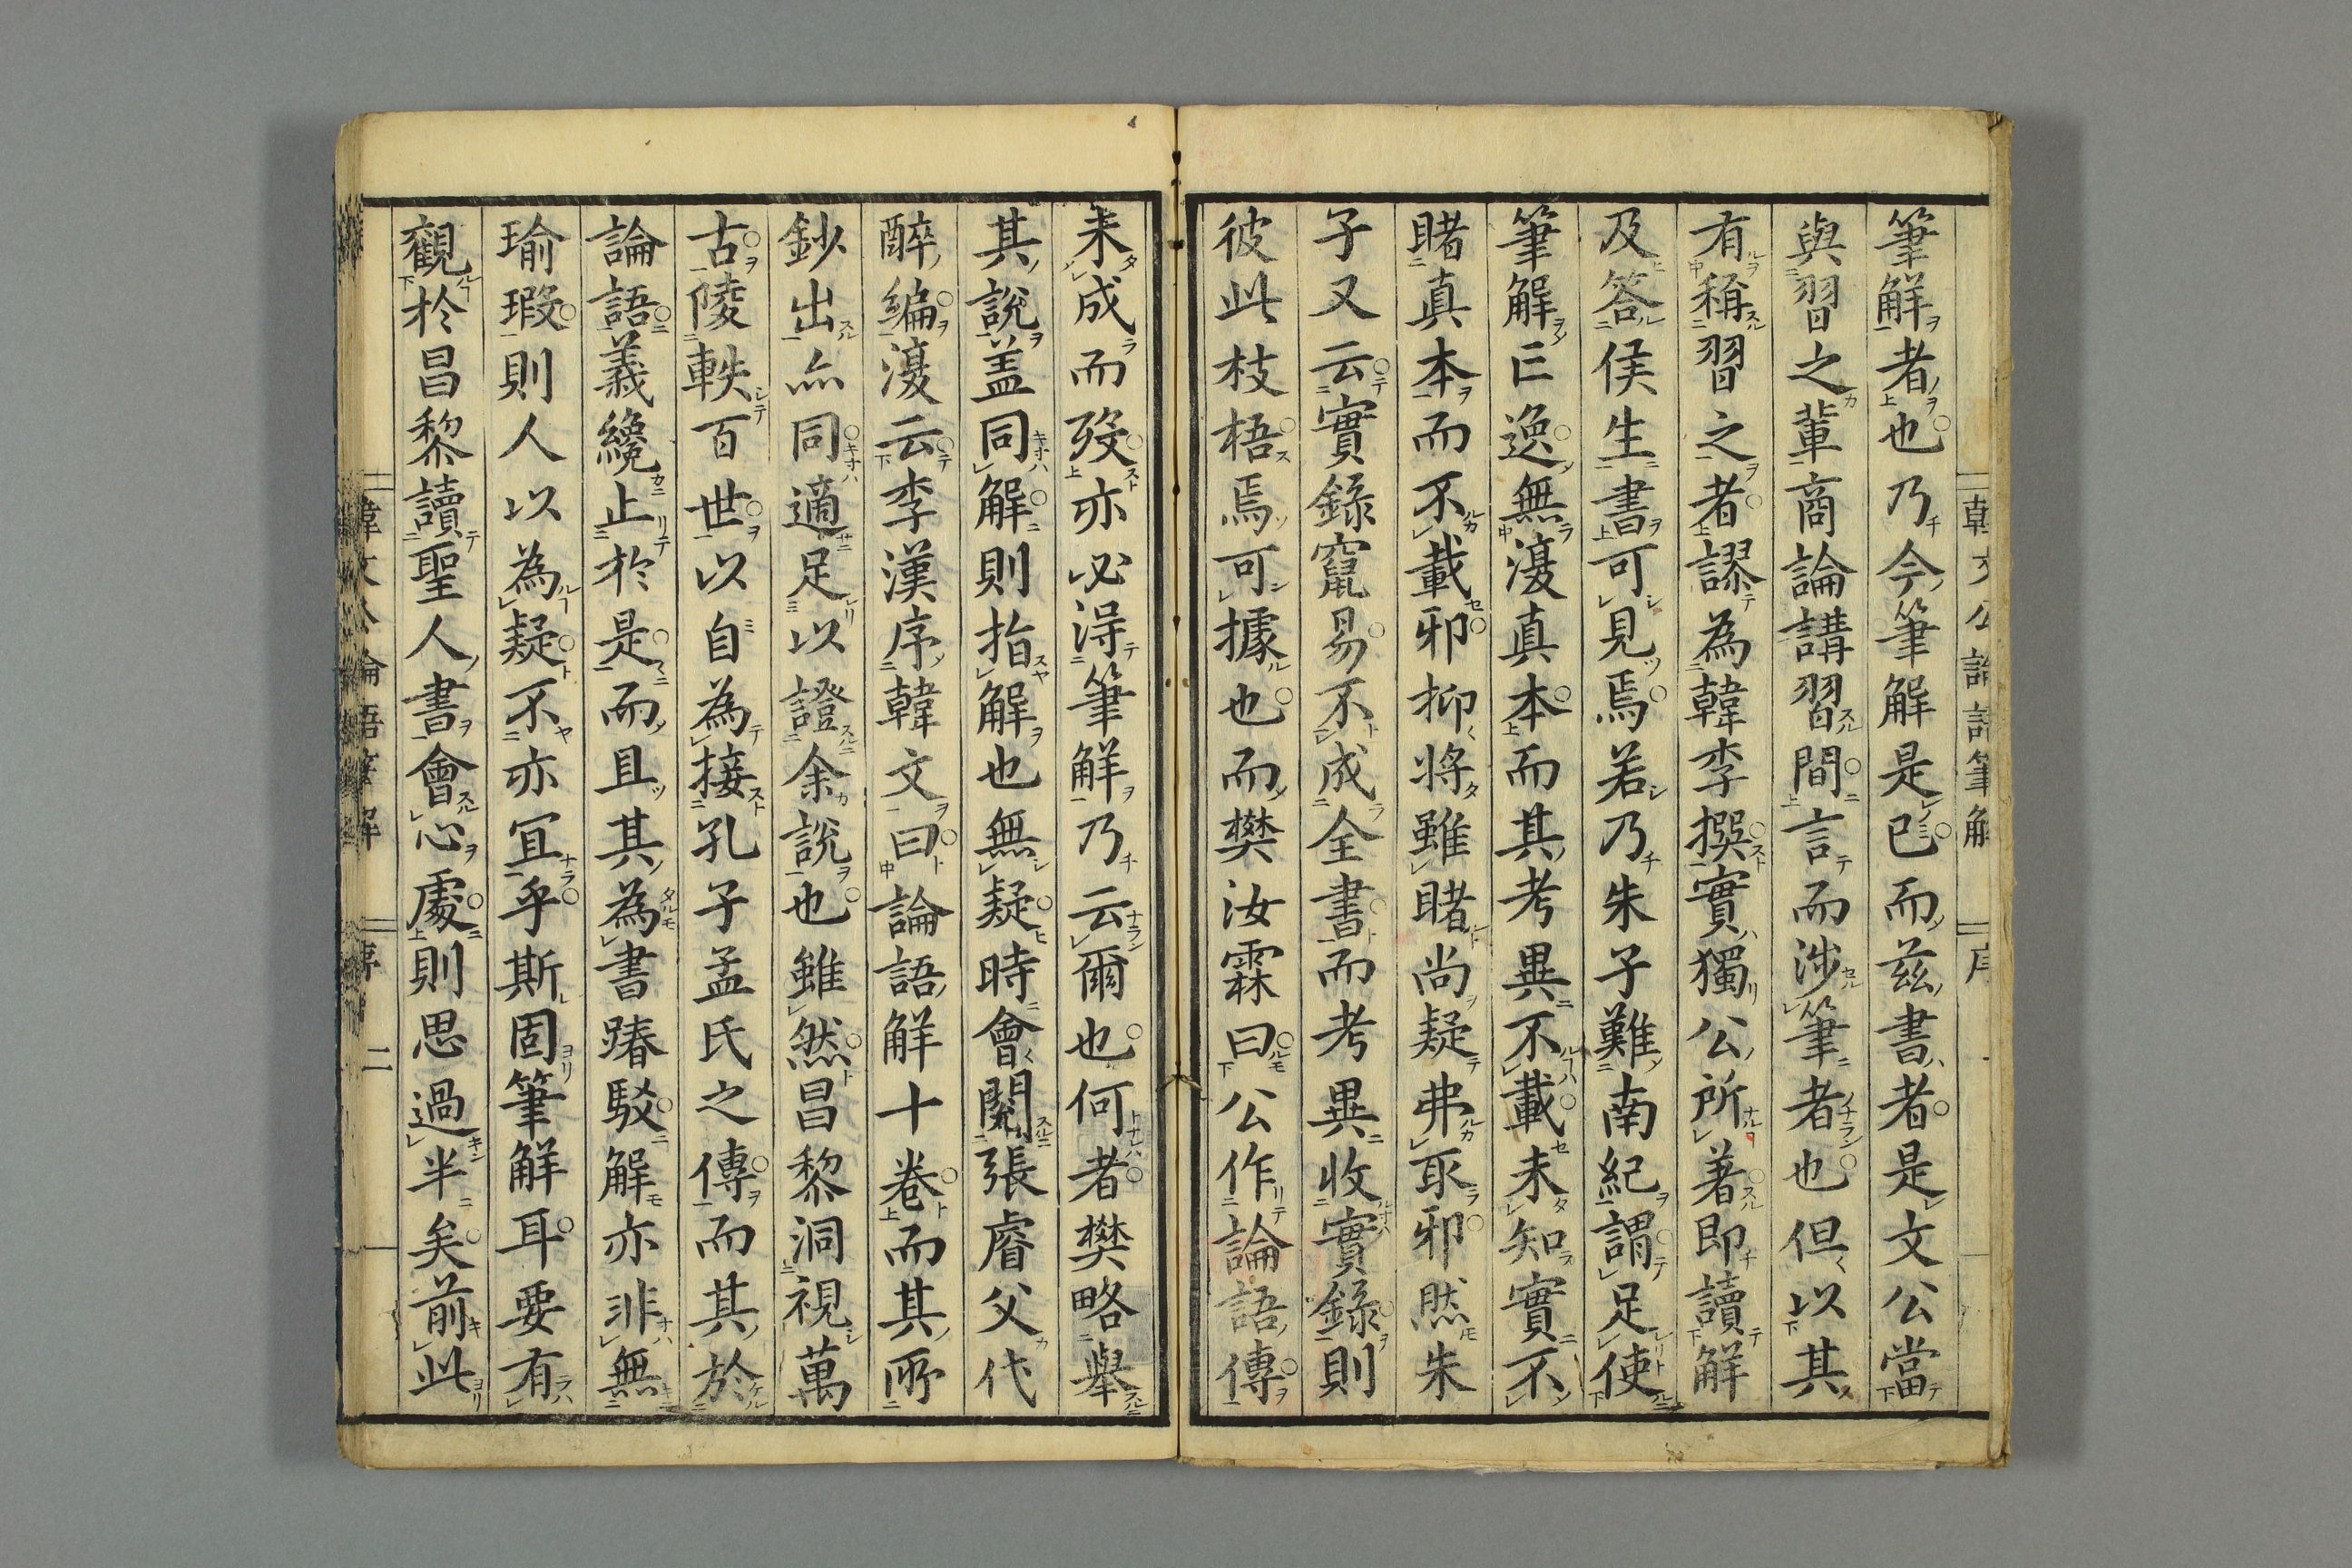 筆解者也乃今筆解是已而茲書者是文公當
與習之輩商論講習間言而涉筆者也但以其
有稱習之者謬為韓李撰實獨公所著即讀解
及答侯生書可見焉若乃朱子難南紀謂足使
筆解亡逸無復真本而其考異不載未知實不
睹真本而不載邪抑將雖睹尚疑弗取邪然朱
子又云實錄竄易不成全書而考異收實錄則
彼此枝梧焉可據也而樊汝霖曰公作論語傳
未成而歿亦必得筆解乃云爾也何者樊略舉
其說蓋同解則指解也無疑時會閱張睿父代
醉編復云李漢序韓文曰論語解十卷而其所
鈔出亦同適足以證余說也雖然昌黎洞視萬
古陵軼百世以自為接孔子孟氏之傳而其於
論語義纔止於是而且其為書踳駁解亦非無
瑜瑕則人以為疑不亦宜乎斯固筆解耳要有
觀於昌黎讀聖人書會心處則思過半矣前此
韓文公論語筆解 序 二